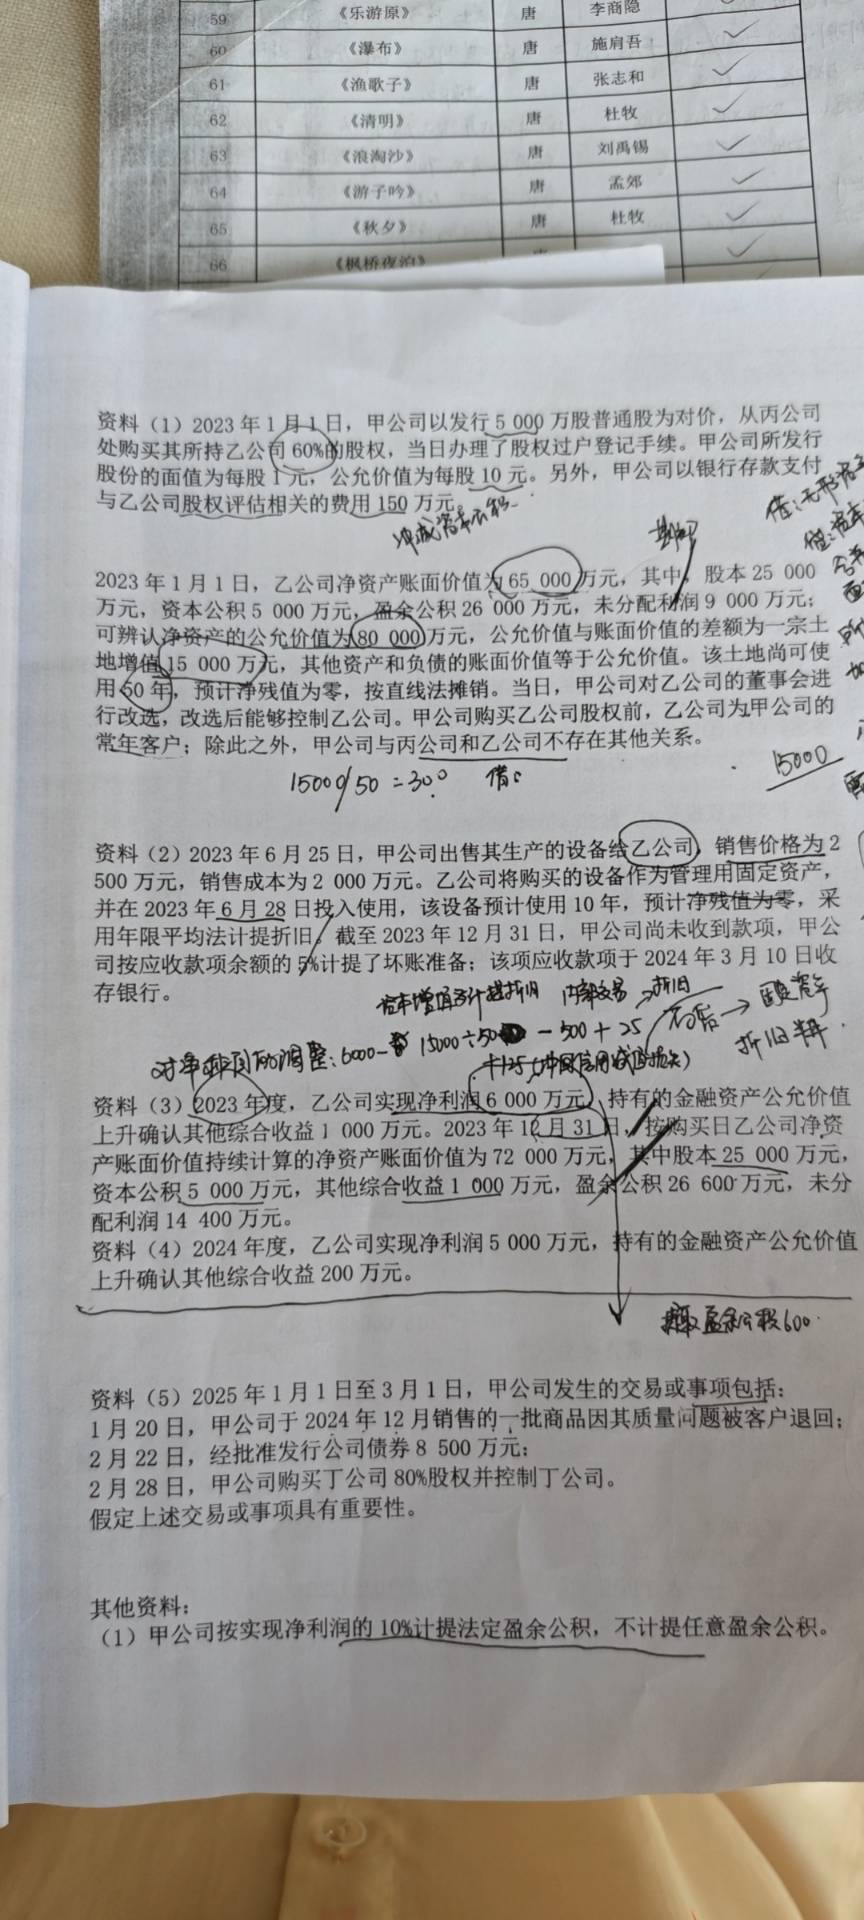 59 《乐游原》 唐 李商隐
60 《瀑布》 唐 施肩吾 ✓
61 《渔歌子》 唐 张志和 ✓
62 《清明》 唐 杜牧 ✓
63 《浪淘沙》 唐 刘禹锡 ✓
64 《游子吟》 唐 孟郊 ✓
65 《秋夕》 唐 杜牧 ✓
66 《枫桥夜泊》
资料（1）2023 年 1 月 1 日，甲公司以发行 5 000 万股普通股为对价，从丙公司
处购买其所持乙公司 60%的股权，当日办理了股权过户登记手续。甲公司所发行
股份的面值为每股 1 元，公允价值为每股 10 元。另外，甲公司以银行存款支付
与乙公司股权评估相关的费用 150 万元。
冲减资本公积
2023 年 1 月 1 日，乙公司净资产账面价值为 65 000 万元，其中，股本 25 000
万元，资本公积 5 000 万元，盈余公积 26 000 万元，未分配利润 9 000 万元；
可辨认净资产的公允价值为 80 000 万元，公允价值与账面价值的差额为一宗土
地增值 15 000 万元，其他资产和负债的账面价值等于公允价值。该土地尚可使
用 50 年，预计净残值为零，按直线法摊销。当日，甲公司对乙公司的董事会进
行改选，改选后能够控制乙公司。甲公司购买乙公司股权前，乙公司为甲公司的
常年客户；除此之外，甲公司与丙公司和乙公司不存在其他关系。
15000/50 = 300 借：
15000
资料（2）2023 年 6 月 25 日，甲公司出售其生产的设备给乙公司，销售价格为 2
500 万元，销售成本为 2 000 万元。乙公司将购买的设备作为管理用固定资产，
并在 2023 年 6 月 28 日投入使用，该设备预计使用 10 年，预计净残值为零，采
用年限平均法计提折旧。截至 2023 年 12 月 31 日，甲公司尚未收到款项，甲公
司按应收款项余额的 5%计提了坏账准备；该项应收款项于 2024 年 3 月 10 日收
存银行。
内部交易 → 折旧
对净利润的调整：6000- 15000÷50 - 500 + 25
+125（冲回信用减值损失）
折旧半年
资料（3）2023 年度，乙公司实现净利润 6 000 万元，持有的金融资产公允价值
上升确认其他综合收益 1 000 万元。2023 年 12 月 31 日，按购买日乙公司净资
产账面价值持续计算的净资产账面价值为 72 000 万元，其中股本 25 000 万元，
资本公积 5 000 万元，其他综合收益 1 000 万元，盈余公积 26 600 万元，未分
配利润 14 400 万元。
资料（4）2024 年度，乙公司实现净利润 5 000 万元，持有的金融资产公允价值
上升确认其他综合收益 200 万元。
提取盈余公积600
资料（5）2025 年 1 月 1 日至 3 月 1 日，甲公司发生的交易或事项包括：
1 月 20 日，甲公司于 2024 年 12 月销售的一批商品因其质量问题被客户退回；
2 月 22 日，经批准发行公司债券 8 500 万元；
2 月 28 日，甲公司购买丁公司 80%股权并控制丁公司。
假定上述交易或事项具有重要性。
其他资料：
（1）甲公司按实现净利润的 10%计提法定盈余公积，不计提任意盈余公积。